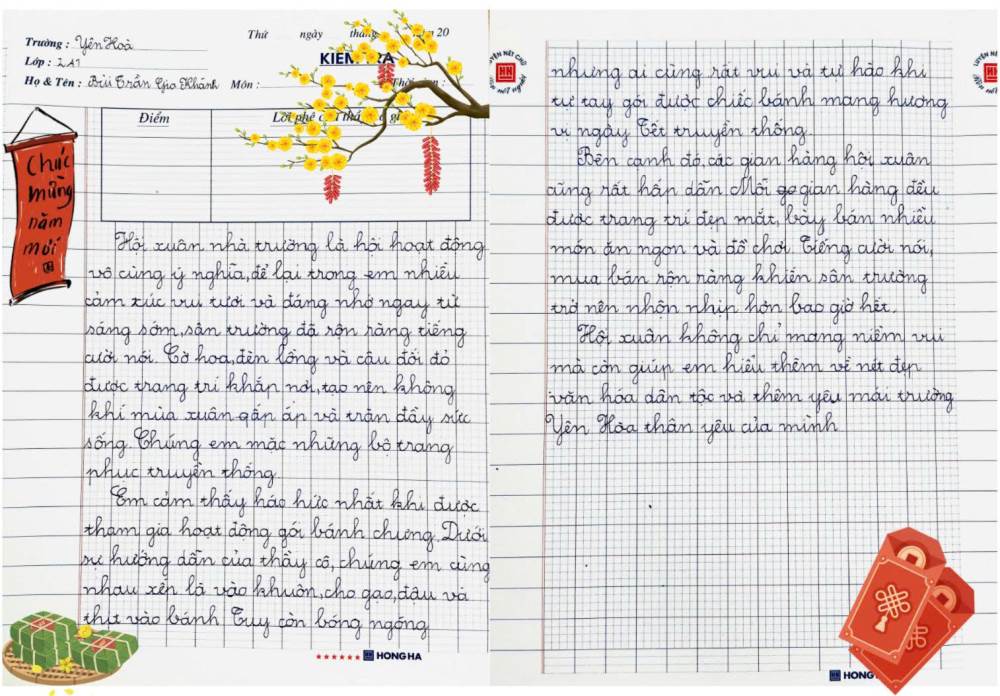 Thứ ngày thán ăm 20
Trường : Yên Hoà
Lớp : 2A1
KIỂM TRA
Họ & Tên : Bùi Trần Gia Khánh Môn : Thời gian :
Điểm
Lời phê của thầy cô gi
Chúc
mừng
năm
mới
Hội xuân nhà trường là hội hoạt động
vô cùng ý nghĩa,để lại trong em nhiều
cảm xúc vui tươi và đáng nhớ ngay từ
sáng sớm,sân trường đã rộn ràng tiếng
cười nói. Cờ hoa,đèn lồng và câu đối đỏ
được trang trí khắp nơi,tạo nên không
khí mùa xuân gấp áp và tràn đầy sức
sống. Chúng em mặc những bộ trang
phục truyền thống.
Em cảm thấy háo hức nhất khi được
tham gia hoạt động gói bánh chưng. Dưới
sự hướng dẫn của thầy cô, chúng em cùng
nhau xếp lá vào khuôn,cho gạo,đậu và
thịt vào bánh Tuy còn bóng ngóng
HONG HA
nhưng ai cũng rất vui và tự hào khi
tự tay gói được chiếc bánh mang hương
vị ngày Tết truyền thống.
Bên cạnh đó, các gian hàng hội xuân
cũng rất hấp dẫn Mỗi go gian hàng đều
được trang trí đẹp mắt, bày bán nhiều
món ăn ngon và đồ chơi. Tiếng cười nói,
mua bán rộn ràng khiến sân trường
trở nên nhộn nhịp hơn bao giờ hết.
Hội xuân không chỉ mang niềm vui
mà còn giúp em hiểu thêm về nét đẹp
văn hóa dân tộc và thêm yêu mái trường
Yên Hòa thân yêu của mình
HONG